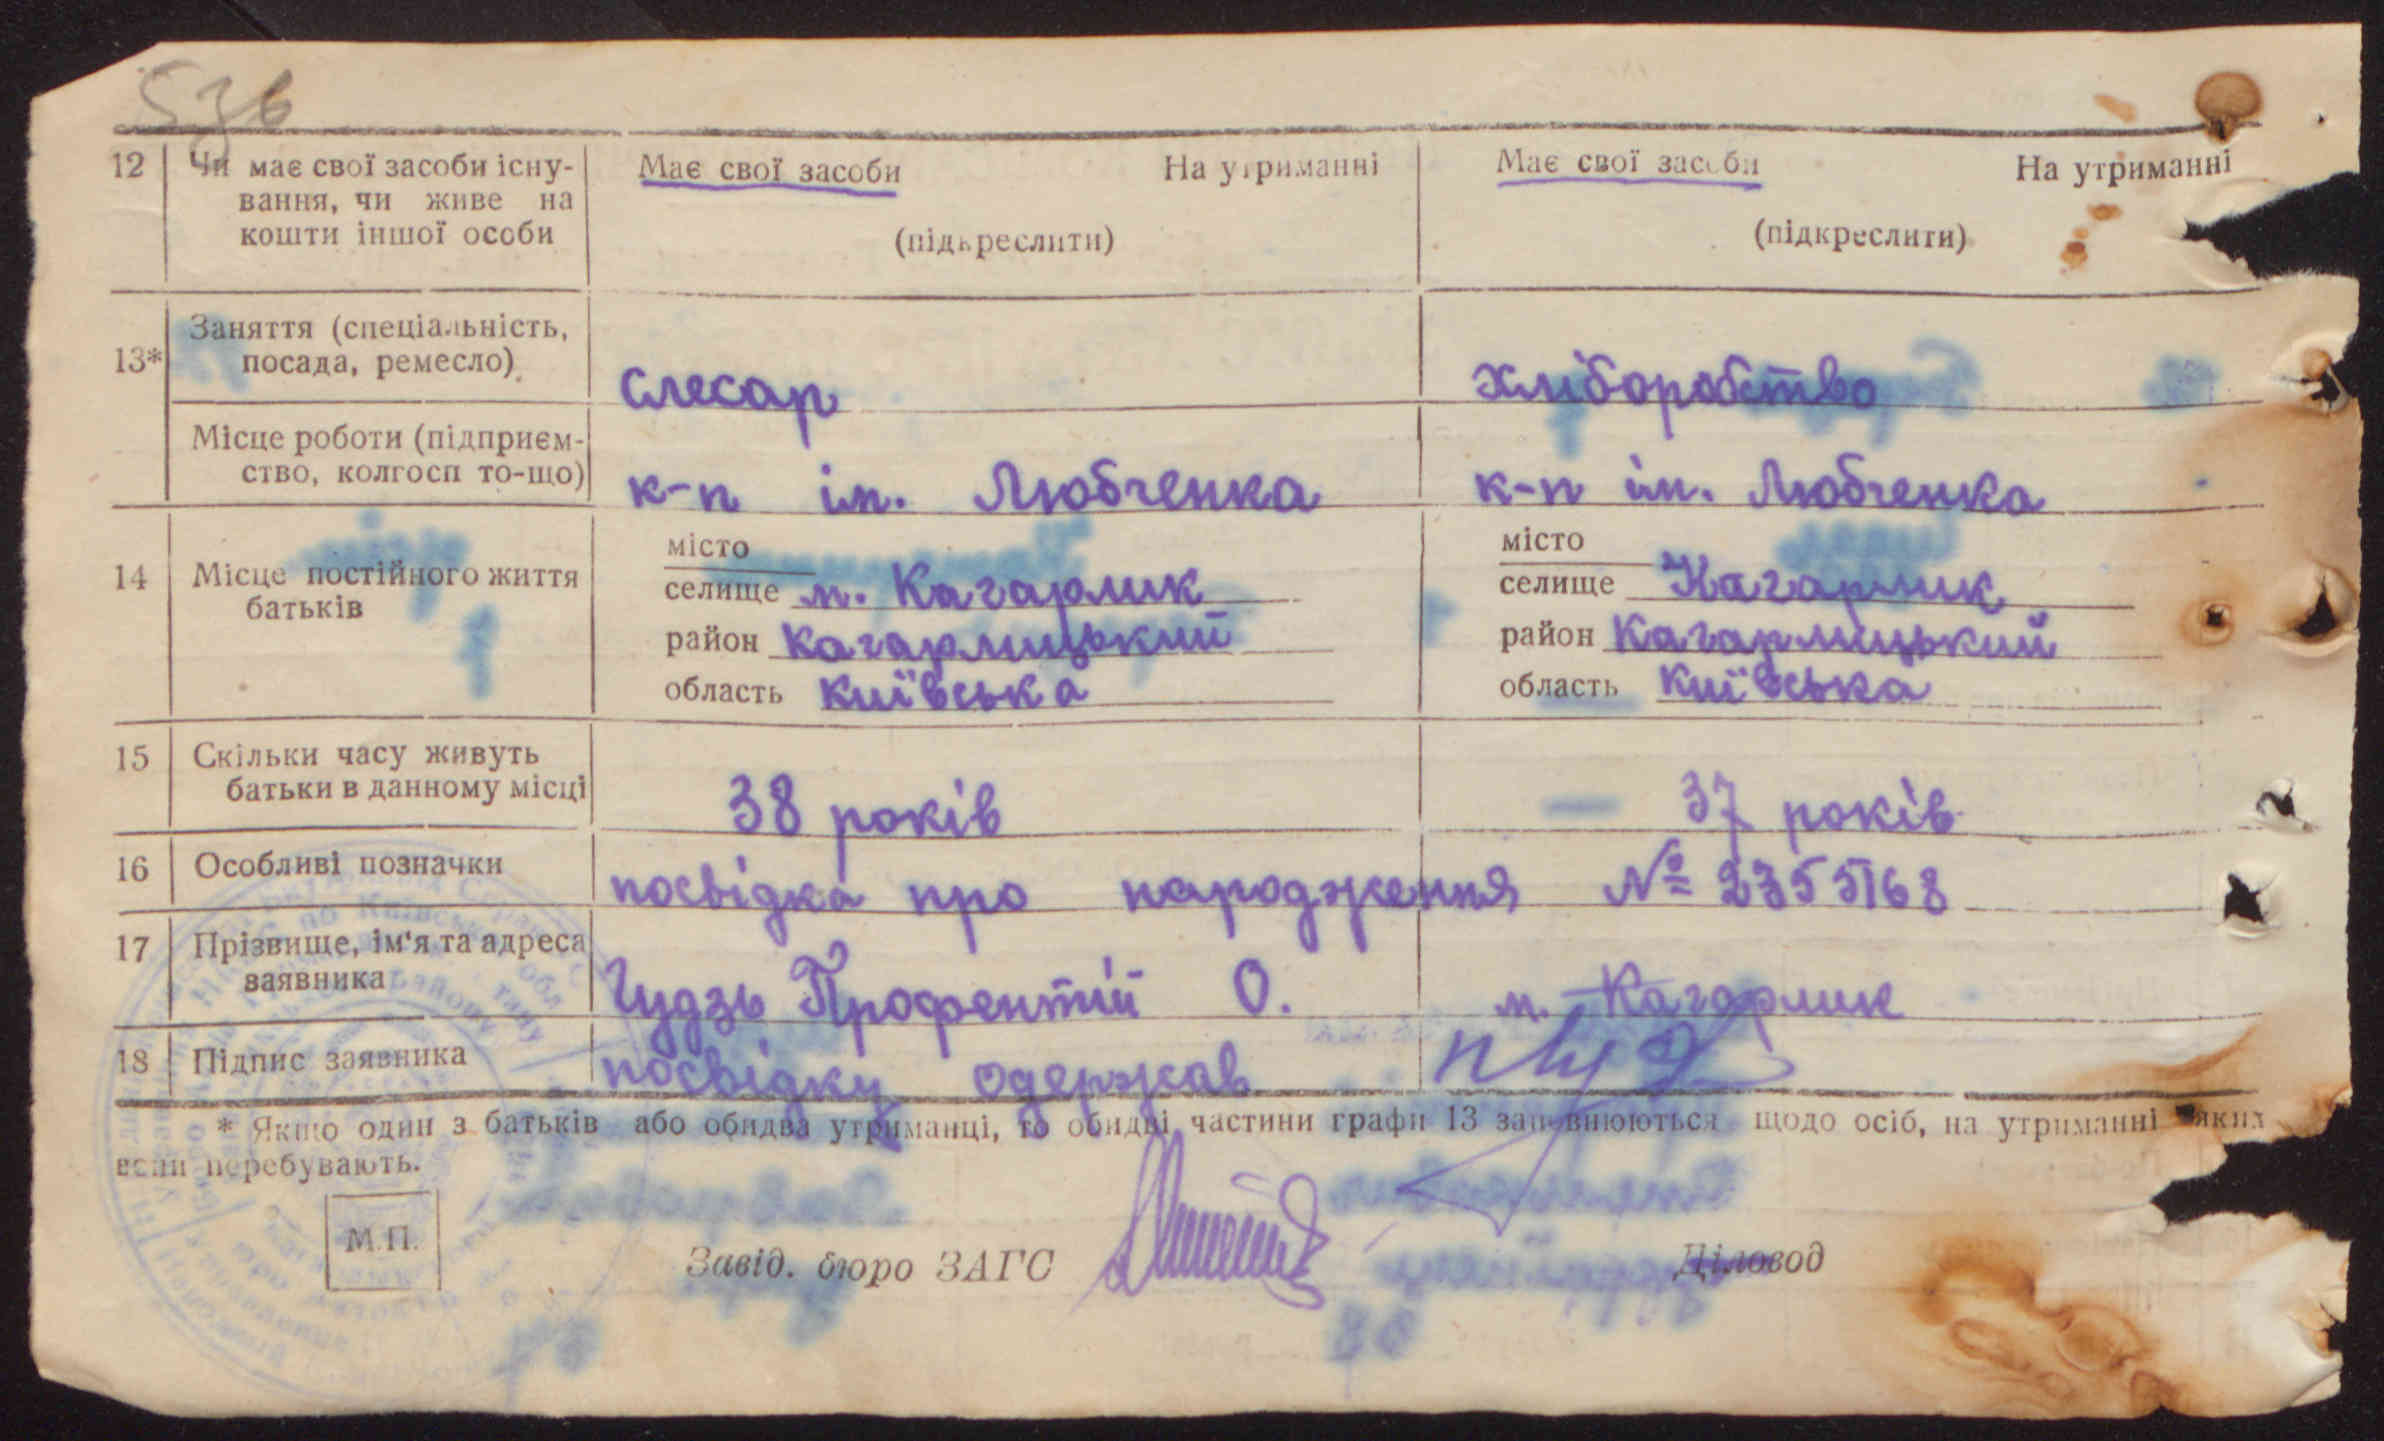 536
12 Чи має свої засоби існу- Має свої засоби На утриманні Має свої засоби На утриманні
вання, чи живе на
кошти іншої особи (підкреслити) (підкреслити)
Заняття (спеціальність,
13* посада, ремесло) слесар хліборобство
Місце роботи (підприєм-
ство, колгосп то-що) к-п ім. Любченка к-п ім. Любченка
місто місто
14 Місце постійного життя селище м. Кагарлик селище Кагарлик
батьків район Кагарлицький район Кагарлицький
область київська область київська
15 Скільки часу живуть
батьки в данному місці 38 років 37 років
16 Особливі позначки посвідка про народження № 2355168
17 Прізвище, ім'я та адреса
заявника Гудзь Профентій О. м. Кагарлик
18 Підпис заявника посвідку одержав
* Якщо один з батьків або обидва утриманці, то обидві частини графи 13 заповнюються щодо осіб, на утриманні яких
вони перебувають.
М.П.
Завід. бюро ЗАГС Діловод